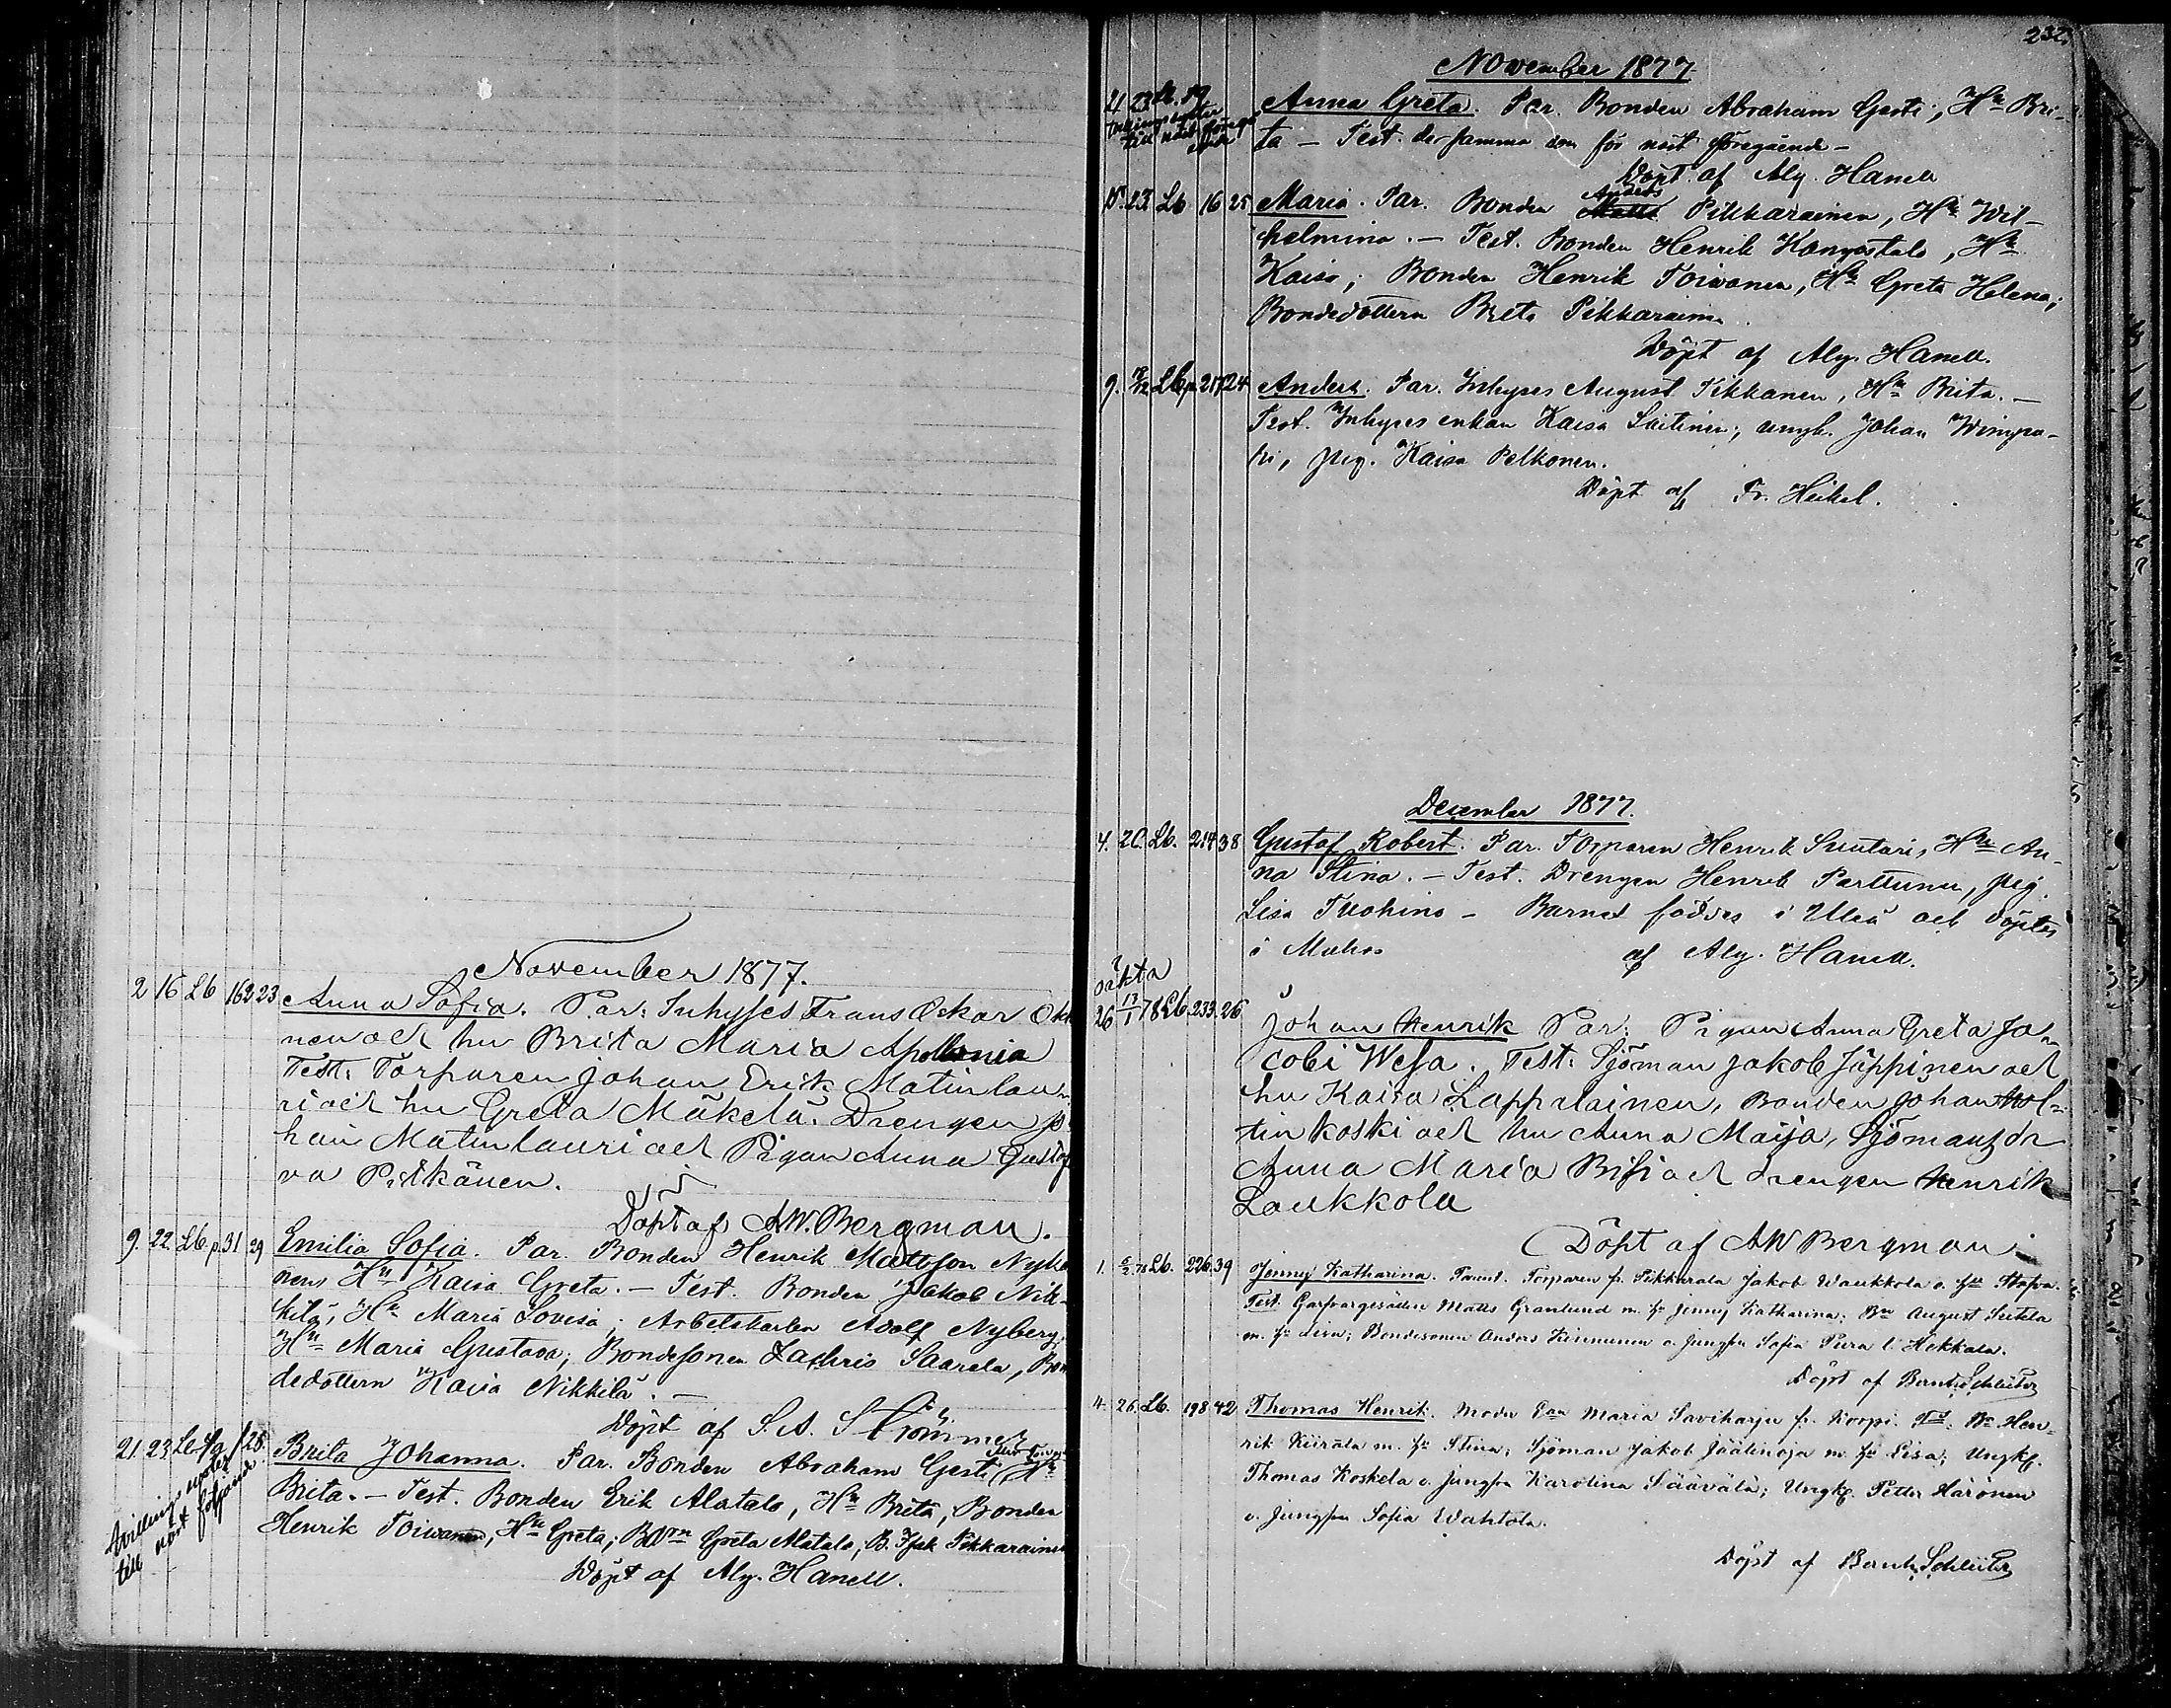 November 1877.
2 16 Lb 162 23 Anna Sofia. Par: Inhyses Frans Oskar
nen och hu Brita Maria Apollonia
Test: Torparen Johan Erik Matinlau-
ri och hu Greta Mäkelä. Drengen Jo
han Matinlauri och Pigan Anna Gustaf
va Pitkänen.
Döpt af AW. Bergman.
9. 22. Lb. p. 31 29 Emilia Sofia. Par. Bonden Henrik Mattsson
Hu Kaisa Greta. – Test. Bonden Jakob Nik-
kilä, Hu Maria Lovisa; Arbetskarlen Adolf Nyberg,
Hu Maria Gustava; Bondesonen Zachris Saarela, Bon
dedottern Kaisa Nikkilä. –
Döpt af S. A. Strömmer
21. 23. Lb. 28. Brita Johanna. Par. Bonden Abraham Gesti, Hu
Brita. – Test. Bonden Erik Alatalo, Hu Brita, Bonden
Henrik Toivanen, Hu Greta; Greta Alatalo, B. Isak Pikkarainen
Döpt af Alg. Hanell.
tvillings
till näst följande
232.
November 1877
21 23 Lb. 59 Anna Greta. Par. Bonden Abraham Gesti, Hu Bri-
till näst
ta – Test. de samma som för näst föregående –
Döpt af Alg. Hanell
Anders
15. 23 Lb 16 25 Maria. Par. Bonden Matts Pikkarainen, Hu Wil-
helmina. – Test. Bonden Henrik Kangostalo, Hu
Kaisa; Bonden Henrik Toivanen, Hu Greta Helena;
Bondedottern Brita Pikkarainen.
Döpt af Alg. Hanell.
9. Lb p. 217 24 Anders. Par. Inhyses August Tikkanen, Hu Brita. –
Test. Inhyses enkan Kaisa Laitinen; ungk. Johan
pig. Kaisa Pelkonen.
Döpt af Fr. Heikel.
December 1877.
4. 20. Lb. 214 38 Gustaf Robert. Par. Torparen Henrik Suutari, Hu An-
na Stina. – Test. Drengen Henrik Parttunen, pig.
Lisa Tuohino – Barnet föddes i Uleå och döptes
i Muhos af Alg. Hanell.
oäkta
26 17/1 78 Lb. 233. 26 Johan Henrik Par: Pigan Anna Greta Ja-
cobi Wesa. Test: Sjöman Jakob Jäppinen och
hu Kaisa Lappalainen, Bonden Johan Mol-
tinkoski och hu Anna Maija, Sjömansdr
Anna Maria Bisi och drengen Henrik
Laukkola
Döpt af AW Bergman
1. 6/2 78 Lb. 226. 39 Jenny Katharina. Torparen fr. Pikkarala Jakob Waukkola o. hu Stafva.
Test. Garfvargesällen Matts Granlund m. hu Jenny Katharina; Bn August Seikela
m. hu Lisa; Bondesonen Anders Kinnunen o. jungfru Sofia Pura l. Hekkala.
Döpt af Bernh. Schlüter
4. 26. Lb. 198 42 Thomas Henrik. Modr Maria Saviharju fr. Korpi. Test. Bn Hen-
rik Kiirala m. hu Stina; Sjöman Jakob Jäälinoja m. hu Lisa; Ungk.
Thomas Koskela o. jungfru Karolina Säävälä; Ungk. Petter Härönen
o. jungfru Sofia Wahtola.
Döpt af Bernh. Schlüter